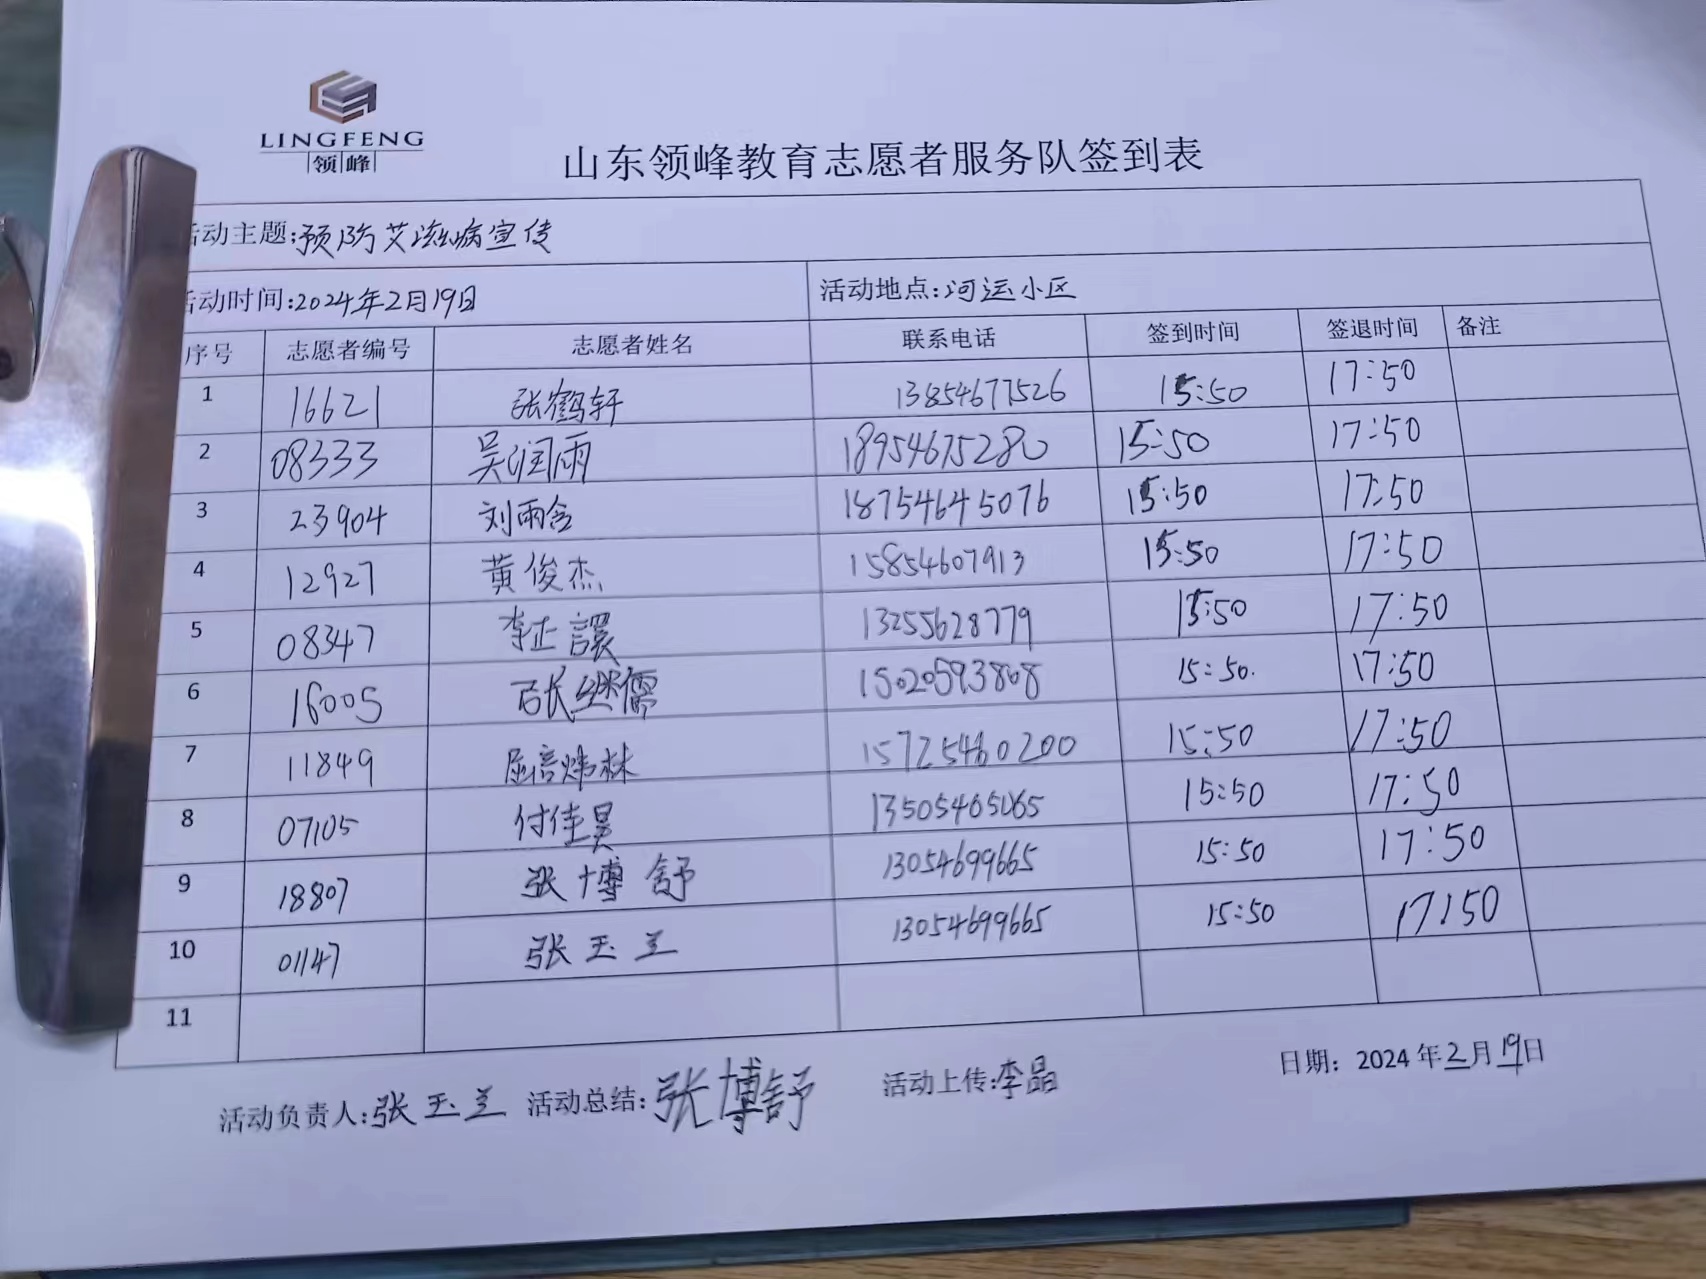 LINGFENG
领峰
山东领峰教育志愿者服务队签到表
活动主题:预防艾滋病宣传
活动时间:2024年2月19日 活动地点:河运小区
序号 志愿者编号 志愿者姓名 联系电话 签到时间 签退时间 备注
1 16621 张鹤轩 13854677526 15:50 17:50
2 08333 吴润雨 18954675280 15:50 17:50
3 23904 刘雨含 18754645076 15:50 17:50
4 12927 黄俊杰 15854607913 15:50 17:50
5 08347 李正 13255628779 15:50 17:50
6 16005 张继儒 15020593808 15:50. 17:50
7 11849 15725460200 15:50 17:50
8 07105 付佳昊 13505465065 15:50 17:50
9 18807 张博舒 13054699665 15:50 17:50
10 01147 张玉兰 13054699665 15:50 17:50
11
活动负责人:张玉兰 活动总结:张博舒 活动上传:李晶 日期：2024年2月19日